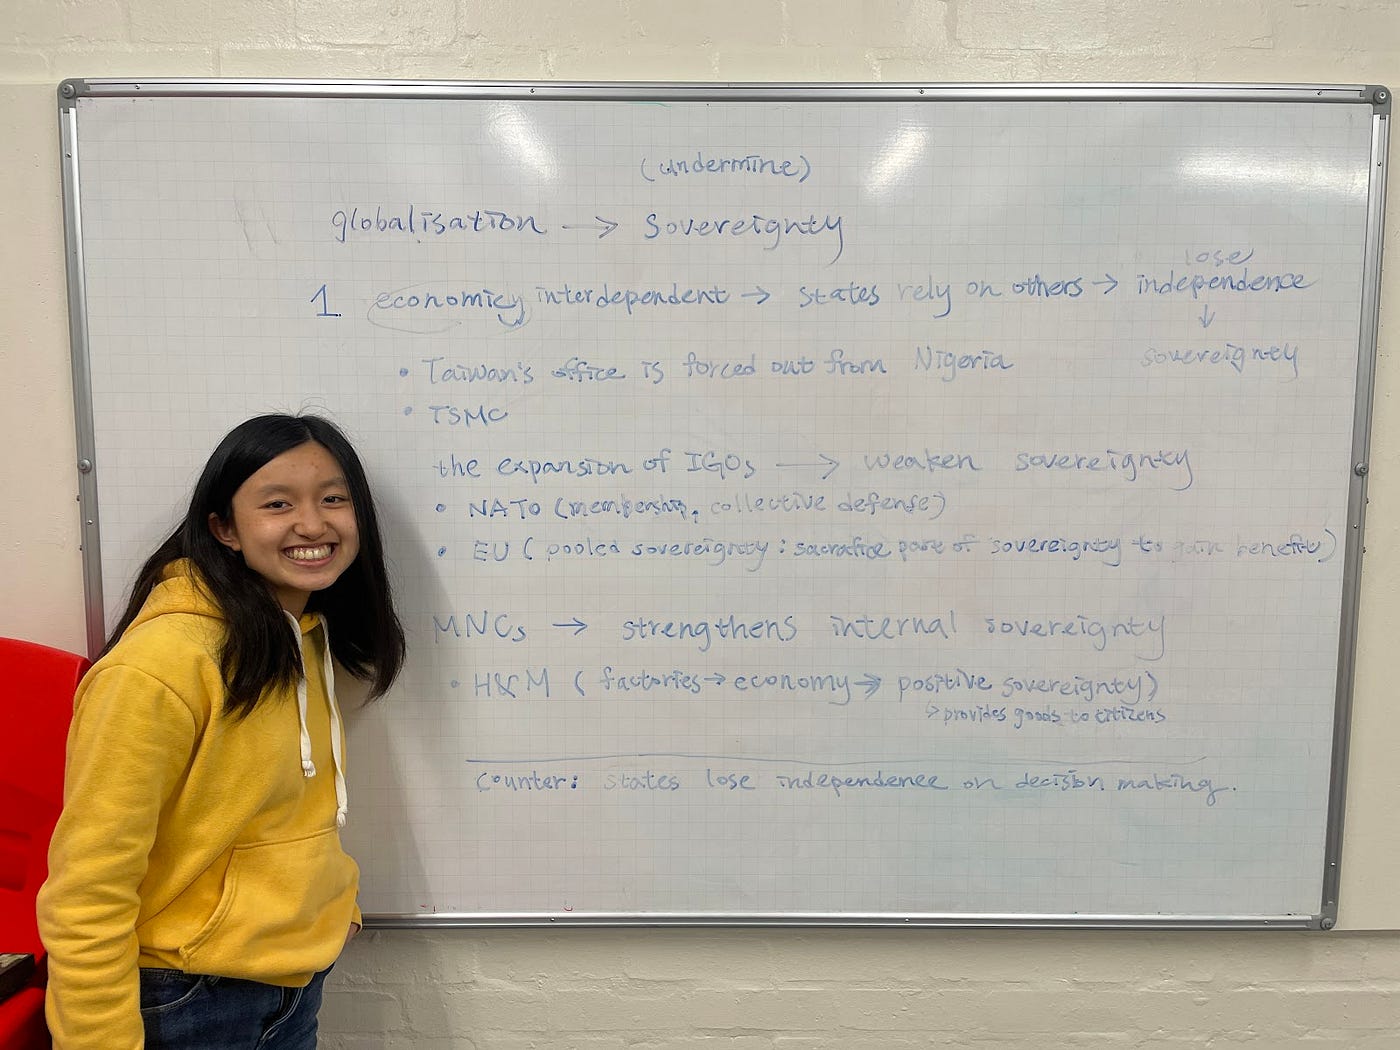 (undermine)
globalisation → sovereignty
lose
1. economicy interdependent → states rely on others → independence
↓
• Taiwan's office is forced out from Nigeria
sovereignty
• TSMC
the expansion of IGOs → weaken sovereignty
• NATO (membership, collective defense)
• EU (pooled sovereignty: sacrafice part of sovereignty to gain benefits)
MNCs → strengthens internal sovereignty
• H&M (factories → economy → positive sovereignty)
↳ provides goods to citizens
counter: states lose independence on decision making.